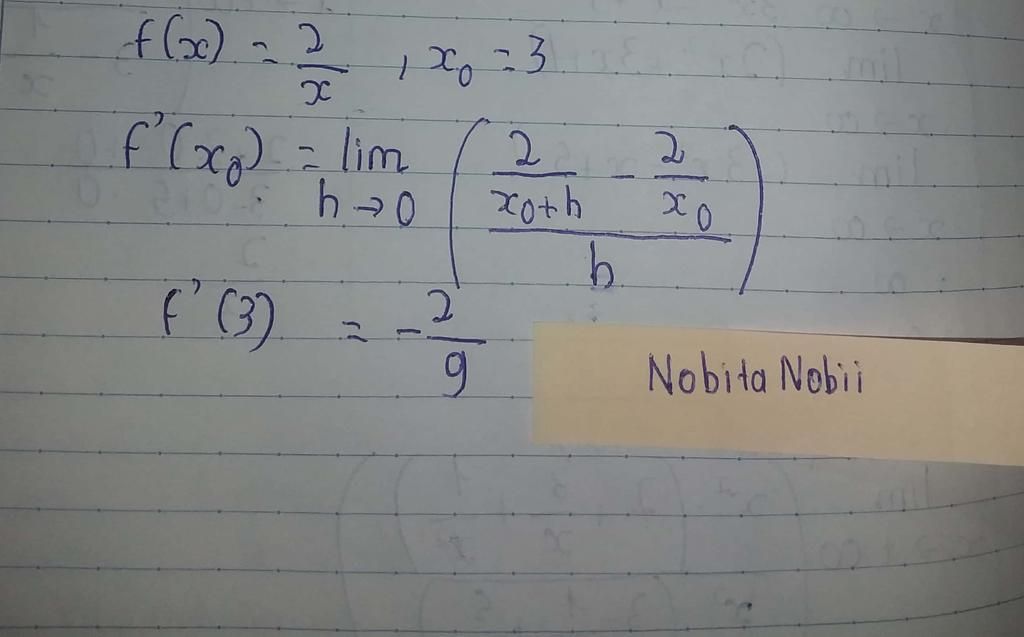 f(x) = 2/x , x₀ = 3
f'(x₀) = lim h→0 ((2/(x₀+h) - 2/x₀)/h)
f'(3) = -2/9
Nobita Nobii